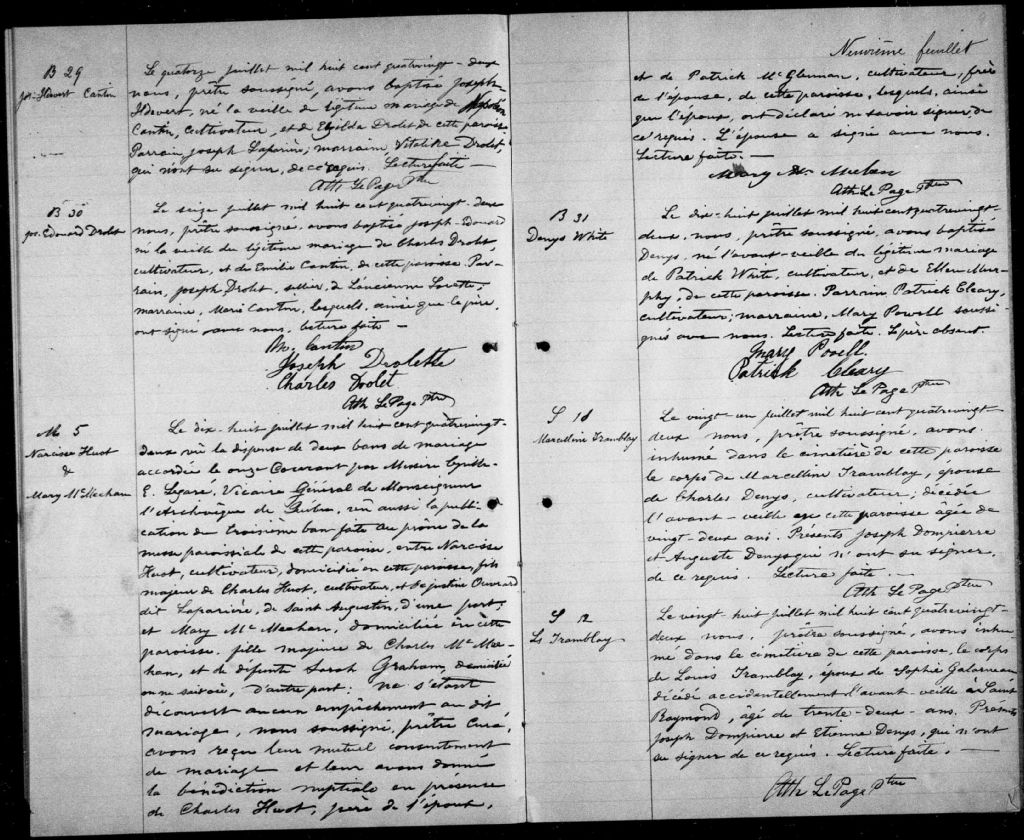 B 29
Jos. Hévert Cantin
Le quatorze juillet mil huit cent quatrevingt-deux
nous, prêtre soussigné, avons baptisé Joseph
Hévert, né la veille du légitime mariage de Napoléon
Cantin, cultivateur, et de Exilda Drolet de cette paroisse
Parrain Joseph Laparière; marraine Vitaline Drolet,
qui n'ont su signer, de ce requis. Lecture faite —
Ath Le Page Ptre
B 30
Jos. Edouard Drolet
Le seize juillet mil huit cent quatrevingt-deux
nous, prêtre soussigné, avons baptisé Joseph Edouard
né la veille du légitime mariage de Charles Drolet,
cultivateur, et de Emilie Cantin, de cette paroisse. Par-
rain, Joseph Drolet, sellier, de L'ancienne Lorette;
marraine, Marie Cantin, lesquels, ainsi que le père,
ont signé avec nous, lecture faite —
M. Cantin
Joseph Drolette
Charles Drolet
Ath Le Page Ptre
M 5
Narcisse Huot
&
Mary McMechan
Le dix-huit juillet mil huit cent quatrevingt-
deux vû la dispense de deux bans de mariage
accordée le onze Courant par Messire Cyrille
E. Legaré, Vicaire Général de Monseigneur
l'Archevêque de Québec, vû aussi la publi-
cation de troisième ban faite au prône de la
messe paroissiale de cette paroisse, entre Narcisse
Huot, cultivateur, domicilié en cette paroisse, fils
majeur de Charles Huot, cultivateur, et de Justine Ouvrard
dit Laparière, de Saint Augustin, d'une part;
et Mary McMechan, domiciliée en cette
paroisse, fille majeure de Charles McMe-
chan, et de défunte Sarah Graham, domicilié
on ne sait où, d'autre part; ne s'étant
découvert aucun empêchement au dit
mariage, nous soussigné, prêtre curé,
avons reçu leur mutuel consentement
de mariage et leur avons donné
la bénédiction nuptiale en présence
de Charles Huot, père de l'époux,
Neuvième feuillet
et de Patrick McGlennan, cultivateur, frère
de l'épouse, de cette paroisse, lesquels, ainsi
que l'époux, ont déclaré ne savoir signer, de
ce requis. L'épouse a signé avec nous.
Lecture faite. —
Mary Mc
Ath Le Page Ptre
B 31
Denys White
Le dix-huit juillet mil huit cent quatrevingt-
deux, nous, prêtre soussigné, avons baptisé
Denys, né l'avant-veille du légitime mariage
de Patrick White, cultivateur, et de Ellen Mur-
phy, de cette paroisse. Parrain Patrick Cleary,
cultivateur; marraine, Mary Powell soussi-
gnés avec nous. Lecture faite. Le père absent.
Mary Powell
Patrick Cleary
Ath Le Page Ptre
S
Marcelline Tramblay
Le vingt-un juillet mil huit cent quatrevingt-
deux nous, prêtre soussigné, avons
inhumé dans le cimetière de cette paroisse
le corps de Marcelline Tramblay, épouse
de Charles Denys, cultivateur; décédée
l'avant-veille en cette paroisse âgée de
vingt-deux ans. Présents Joseph Dompierre
et Auguste Denys qui n'ont su signer,
de ce requis. Lecture faite. —
Ath Le Page Ptre
S 12
Ls Tramblay
Le vingt-huit juillet mil huit cent quatrevingt-
deux nous, prêtre soussigné, avons inhu-
mé dans le cimetière de cette paroisse, le corps
de Louis Tramblay, époux de Sophie Galarneau
décédé accidentellement l'avant-veille à Saint
Raymond, âgé de trente-deux-ans. Présents
Joseph Dompierre et Etienne Denys, qui n'ont
su signer de ce requis. Lecture faite. —
Ath Le Page Ptre